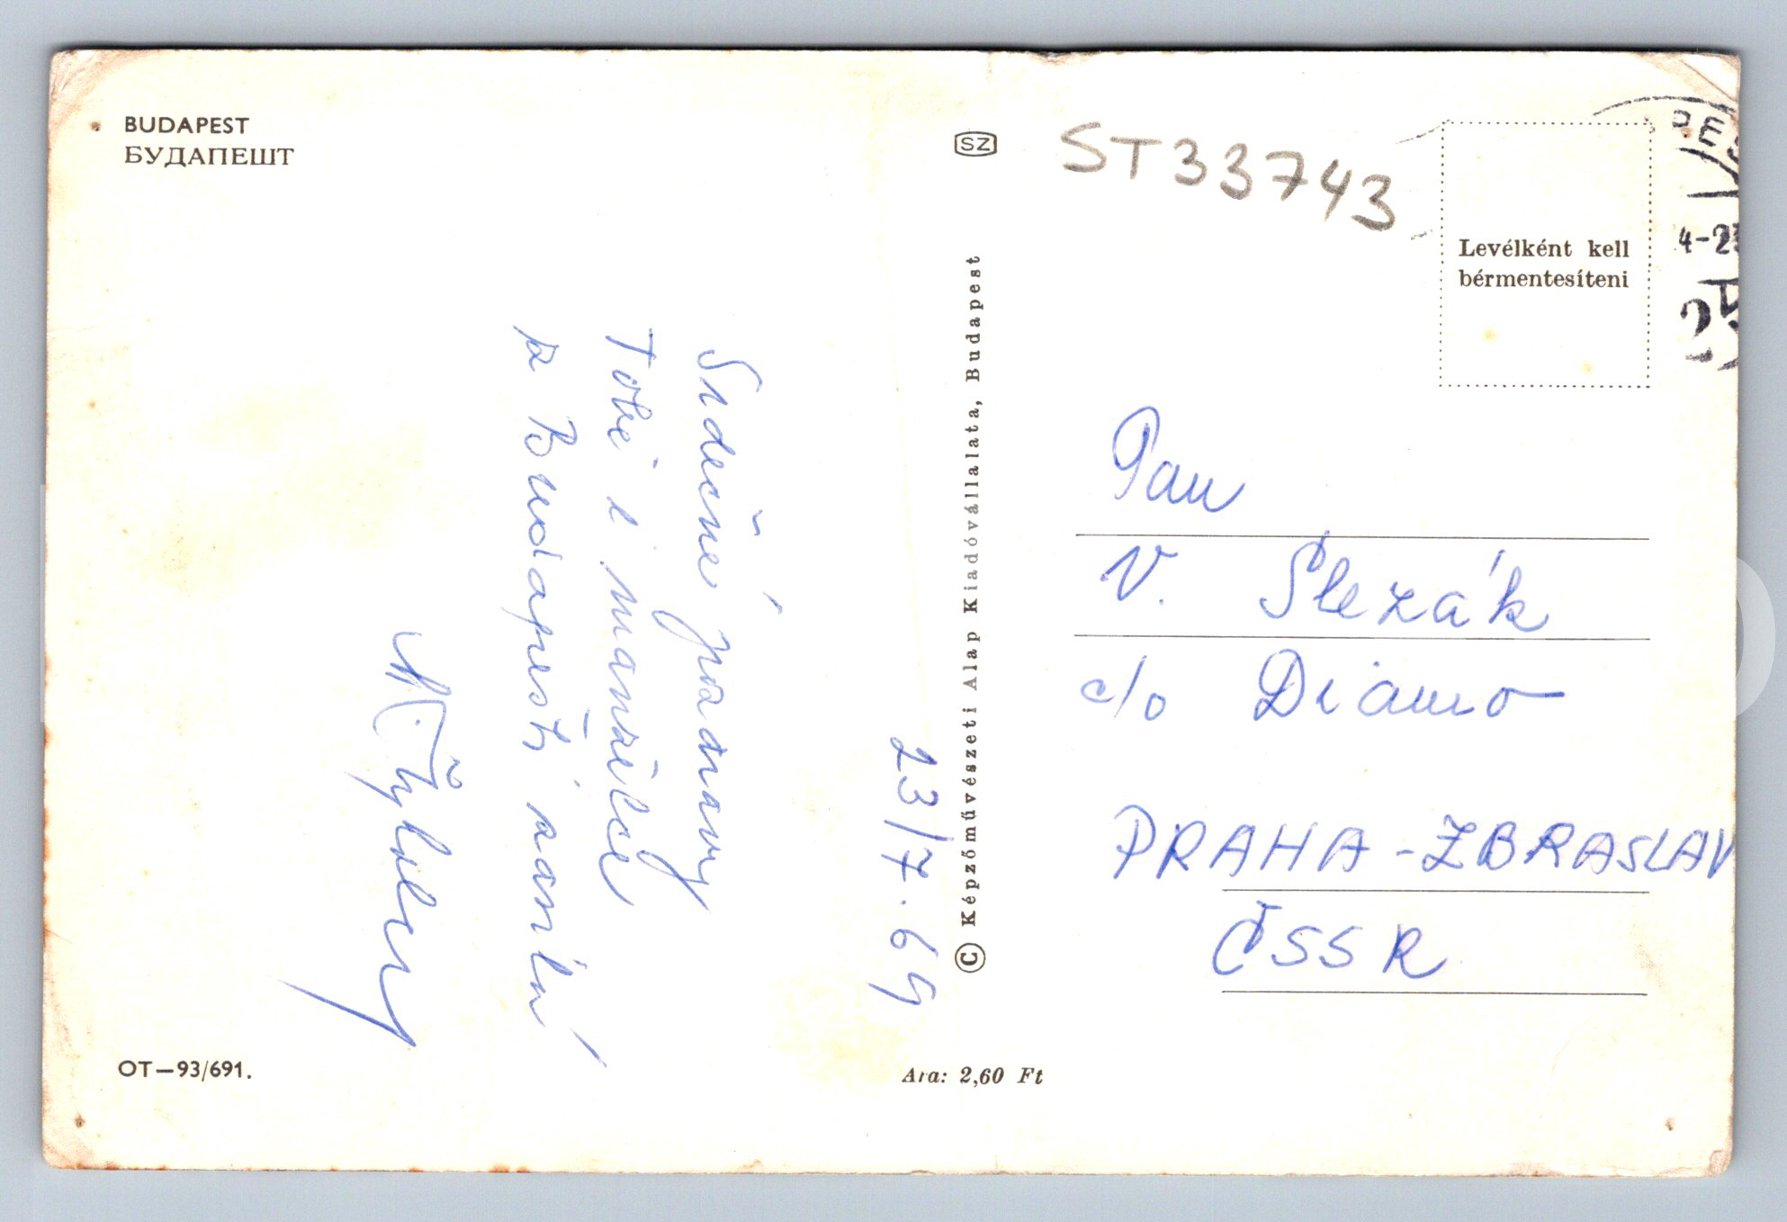 BUDAPEST
БУДАПЕШТ
SZ
ST33743
Levélként kell
bérmentesíteni
4-2
25
23/7.69
Srdečné pozdravy
Tobě i manželce
z Budapešti zasílá
M.
Pan
V. Slezák
c/o Diamo
PRAHA-ZBRASLAV
ČSSR
© Képzőművészeti Alap Kiadóvállalata, Budapest
OT-93/691.
Ára: 2,60 Ft